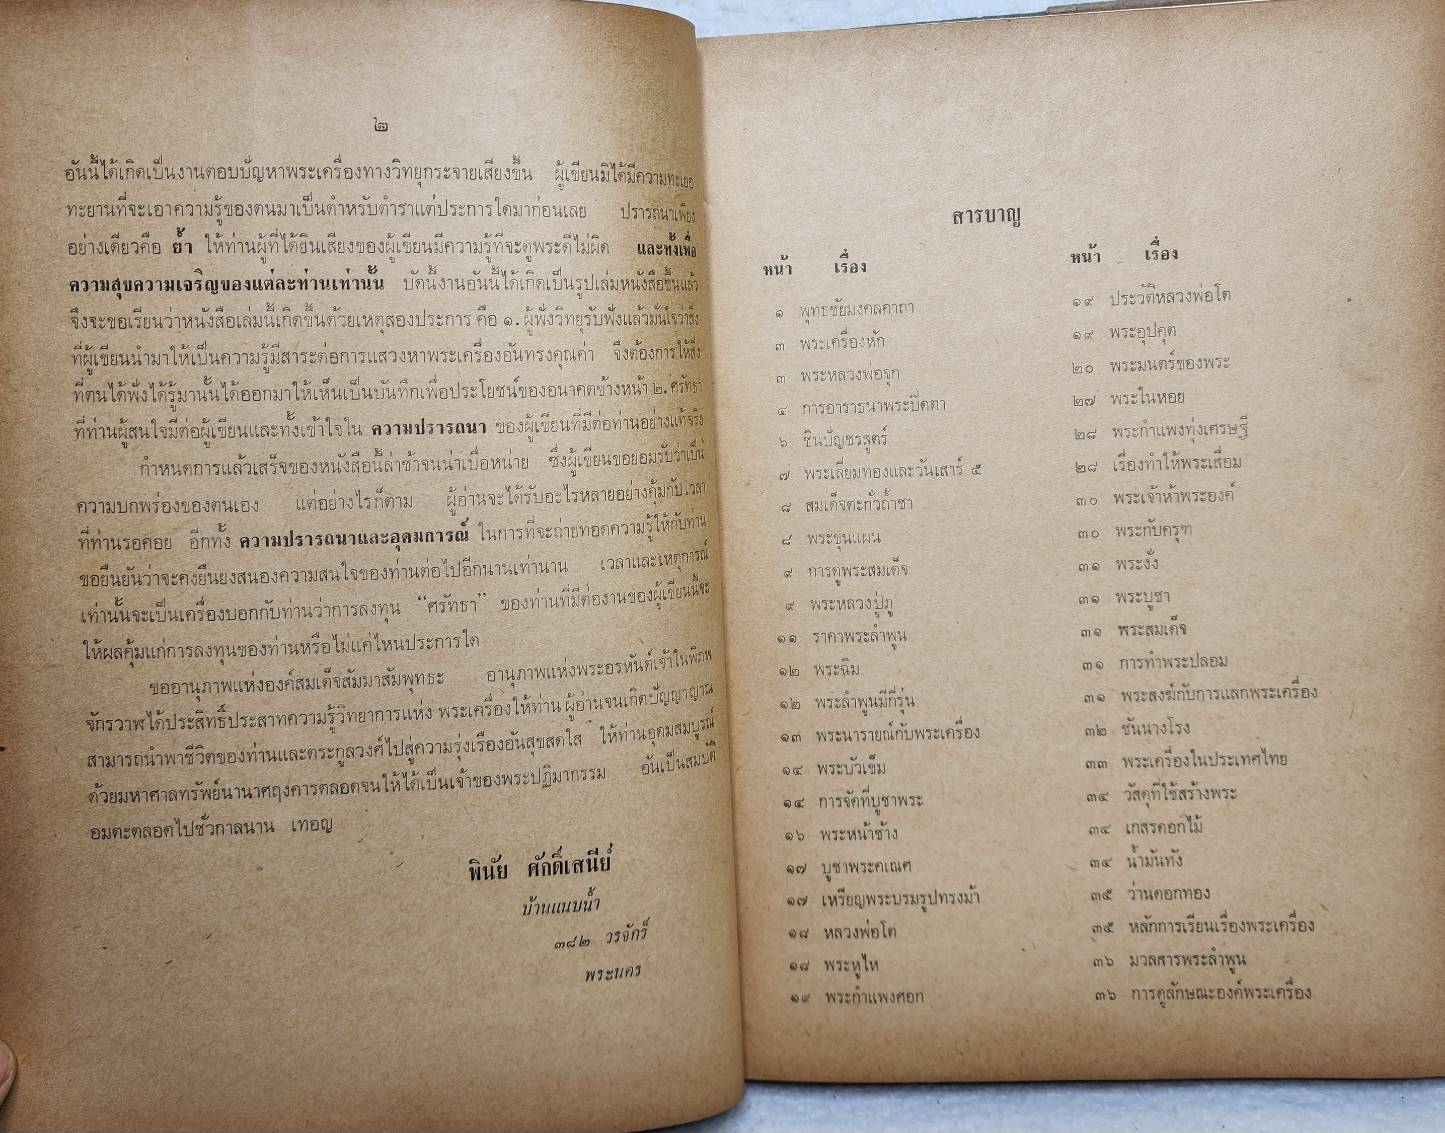 ๒
อันนี้ได้เกิดเป็นงานตอบปัญหาพระเครื่องทางวิทยุกระจายเสียงขึ้น ผู้เขียนมิได้มีความทะเยอ
ทะยานที่จะเอาความรู้ของตนมาเป็นตำหรับตำราแต่ประการใดมาก่อนเลย ปรารถนาเพียง
อย่างเดียวคือ ย้ำ ให้ท่านผู้ที่ได้ยินเสียงของผู้เขียนมีความรู้ที่จะดูพระดีไม่ผิด และทั้งเพื่อ
ความสุขความเจริญของแต่ละท่านเท่านั้น บัดนี้งานอันนี้ได้เกิดเป็นรูปเล่มหนังสือขึ้นแล้ว
จึงจะขอเรียนว่าหนังสือเล่มนี้เกิดขึ้นด้วยเหตุสองประการ คือ ๑. ผู้ฟังวิทยุรับฟังแล้วมั่นใจว่าสิ่ง
ที่ผู้เขียนนำมาให้เป็นความรู้มีสาระต่อการแสวงหาพระเครื่องอันทรงคุณค่า จึงต้องการให้สิ่ง
ที่ตนได้ฟังได้รู้มานั้นได้ออกมาให้เห็นเป็นบันทึกเพื่อประโยชน์ของอนาคตข้างหน้า ๒. ศรัทธา
ที่ท่านผู้สนใจมีต่อผู้เขียนและทั้งเข้าใจใน ความปรารถนา ของผู้เขียนที่มีต่อท่านอย่างแท้จริง
กำหนดการแล้วเสร็จของหนังสือนี้ล่าช้าจนน่าเบื่อหน่าย ซึ่งผู้เขียนขอยอมรับว่าเป็น
ความบกพร่องของตนเอง แต่อย่างไรก็ตาม ผู้อ่านจะได้รับอะไรหลายอย่างคุ้มกับเวลา
ที่ท่านรอคอย อีกทั้ง ความปรารถนาและอุดมการณ์ ในการที่จะถ่ายทอดความรู้ให้กับท่าน
ขอยืนยันว่าจะคงยืนยงสนองความสนใจของท่านต่อไปอีกนานเท่านาน เวลาและเหตุการณ์
เท่านั้นจะเป็นเครื่องบอกกับท่านว่าการลงทุน "ศรัทธา" ของท่านที่มีต่องานของผู้เขียนนี้จะ
ให้ผลคุ้มแก่การลงทุนของท่านหรือไม่แค่ไหนประการใด
ขออานุภาพแห่งองค์สมเด็จสัมมาสัมพุทธะ อานุภาพแห่งพระอรหันต์เจ้าในพิภพ
จักรวาฬได้ประสิทธิ์ประสาทความรู้วิทยาการแห่ง พระเครื่องให้ท่าน ผู้อ่านจนเกิดปัญญาญาณ
สามารถนำพาชีวิตของท่านและตระกูลวงศ์ไปสู่ความรุ่งเรืองอันสุขสดใส ให้ท่านอุดมสมบูรณ์
ด้วยมหาศาลทรัพย์นานาศฤงคารตลอดจนให้ได้เป็นเจ้าของพระปฏิมากรรม อันเป็นสมบัติ
อมตะตลอดไปชั่วกาลนาน เทอญ
พินัย ศักดิ์เสนีย์
บ้านแนบน้ำ
๓๘๒ วรจักร์
พระนคร
สารบาญ
หน้า เรื่อง
๑ พุทธชัยมงคลคาถา
๓ พระเครื่องหัก
๓ พระหลวงพ่อจุก
๔ การอาราธนาพระปิดตา
๖ ชินบัญชรสูตร์
๗ พระเลี่ยมทองและวันเสาร์ ๕
๘ สมเด็จตะกั่วถ้ำชา
๘ พระขุนแผน
๙ การดูพระสมเด็จ
๙ พระหลวงปู่ภู
๑๑ ราคาพระลำพูน
๑๒ พระฉิม
๑๒ พระลำพูนมีกี่รุ่น
๑๓ พระนารายณ์กับพระเครื่อง
๑๔ พระบัวเข็ม
๑๔ การจัดที่บูชาพระ
๑๖ พระหน้าช้าง
๑๗ บูชาพระคเณศ
๑๗ เหรียญพระบรมรูปทรงม้า
๑๘ หลวงพ่อโต
๑๘ พระหูไห
๑๙ พระกำแพงศอก
หน้า เรื่อง
๑๙ ประวัติหลวงพ่อโต
๑๙ พระอุปคุต
๒๐ พระมนตร์ของพระ
๒๗ พระในหอย
๒๘ พระกำแพงทุ่งเศรษฐี
๒๘ เรื่องทำให้พระเสื่อม
๓๐ พระเจ้าห้าพระองค์
๓๐ พระกับครุฑ
๓๑ พระงั่ง
๓๑ พระบูชา
๓๑ พระสมเด็จ
๓๑ การทำพระปลอม
๓๑ พระสงฆ์กับการแลกพระเครื่อง
๓๒ ชันนางโรง
๓๓ พระเครื่องในประเทศไทย
๓๔ วัสดุที่ใช้สร้างพระ
๓๔ เกสรดอกไม้
๓๔ น้ำมันทัง
๓๕ ว่านดอกทอง
๓๕ หลักการเรียนเรื่องพระเครื่อง
๓๖ มวลสารพระลำพูน
๓๖ การดูลักษณะองค์พระเครื่อง